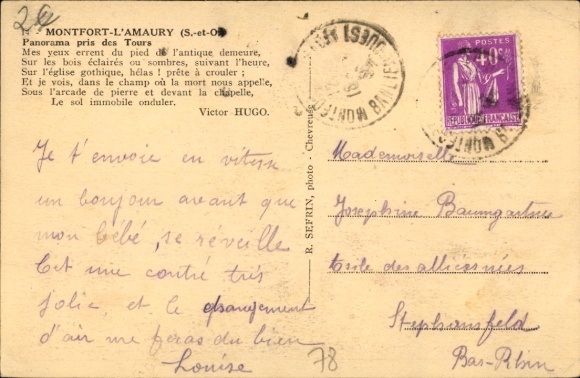 26
MONTFORT-L'AMAURY (S.-et-O.)
Panorama pris des Tours
Mes yeux errent du pied de l'antique demeure,
Sur les bois éclairés ou sombres, suivant l'heure,
Sur l'église gothique, hélas ! prête à crouler ;
Et je vois, dans le champ où la mort nous appelle,
Sous l'arcade de pierre et devant la chapelle,
Le sol immobile onduler.
Victor HUGO.
Je t'envoie en vitesse
un bonjour avant que
mon bébé, se réveille
C'est une contré très
jolie et le changement
d'air me feras du bien
Louise
R. SEFRIN, photo - Chevreuse
POSTES
RÉPUBLIQUE FRANÇAISE
Mademoiselle
Joséphine Baumgartner
Asile des alliénées
Stephansfeld
Bas-Rhin
78